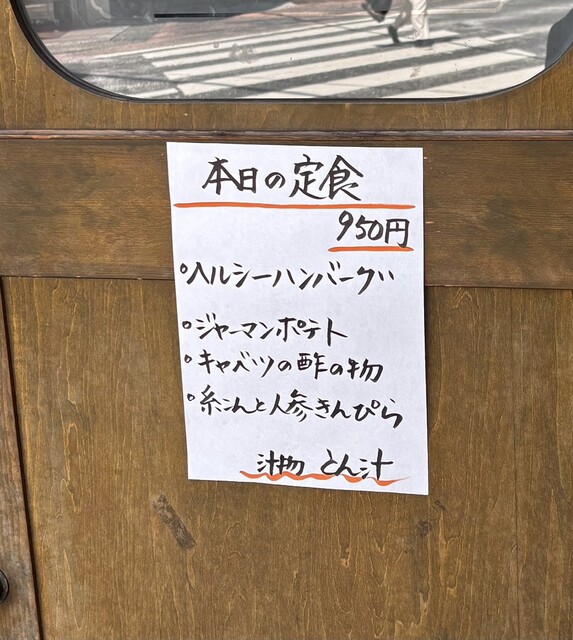 本日の定食
950円
°ヘルシーハンバーグ
°ジャーマンポテト
°キャベツの酢の物
°糸こんと人参きんぴら
汁物 とん汁